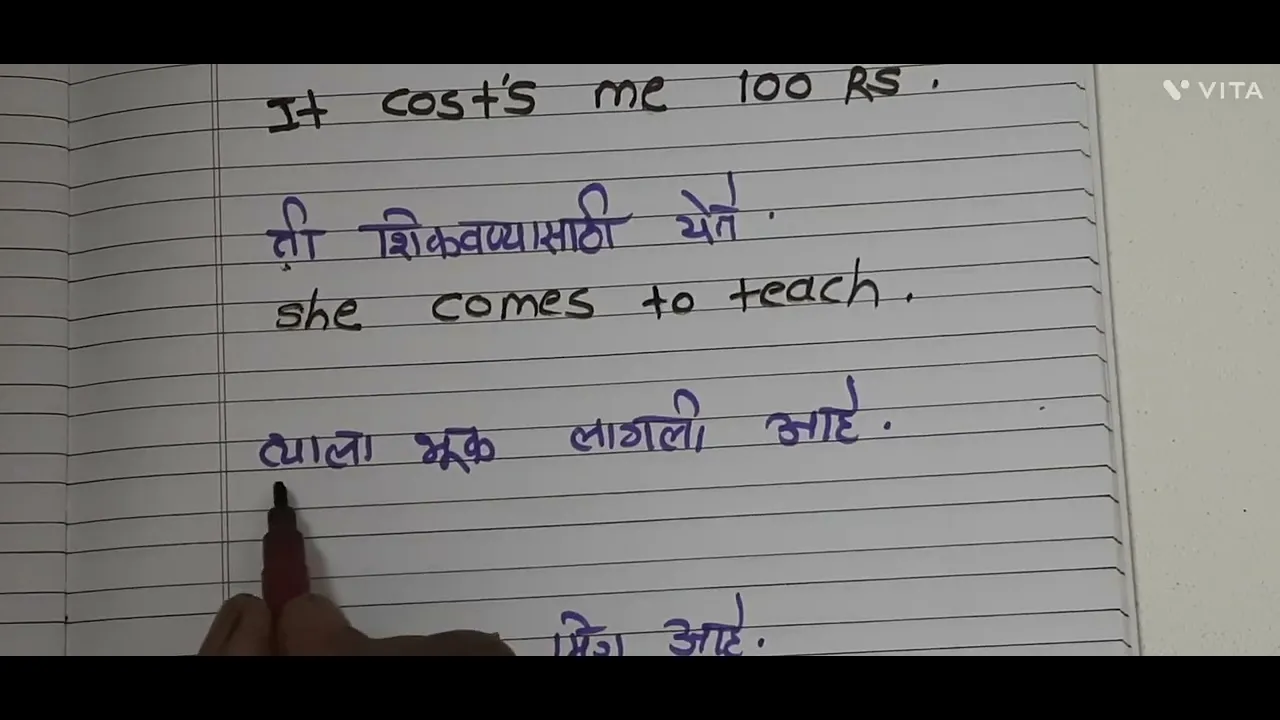 It cost's me 100 RS.
VITA
ती शिकवण्यासाठी येते.
she comes to teach.
त्याला भूक लागली आहे.
आहे.